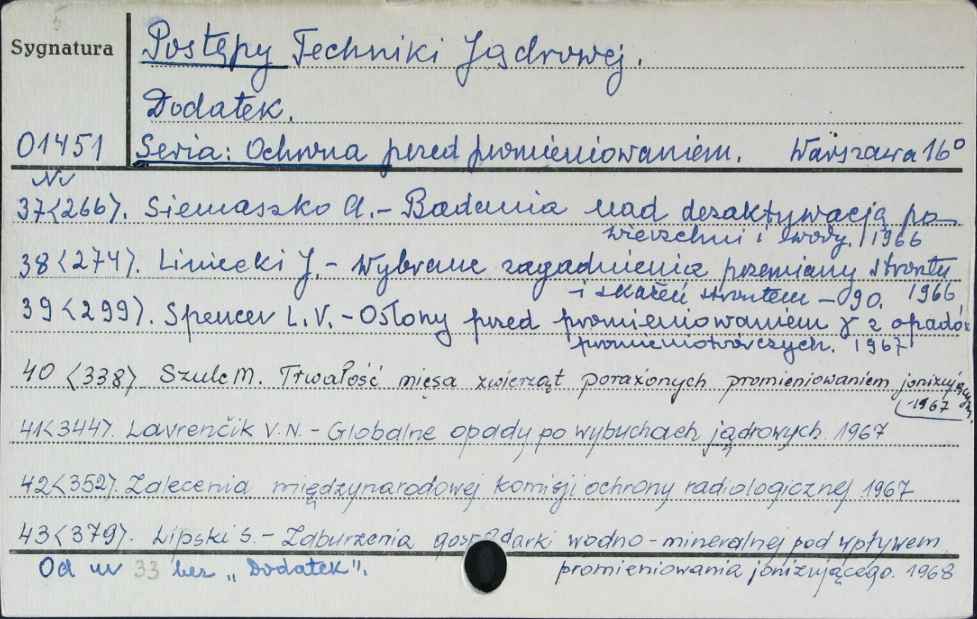 Sygnatura
Postępy Techniki Jądrowej.
Dodatek.
01451
Seria: Ochrona przed promieniowaniem. Warszawa 16°
Nr
37<266>. Siemaszko A. - Badania nad dezaktywacją po-
wierzchni i wody. 1966
38<274>. Liniecki J. - Wybrane zagadnienia przemiany strontu
i skażeń strontem - 90. 1966
39<299>. Spencer L.V. - Osłony przed promieniowaniem γ z opadów
promieniotwórczych. 1967
40 <338> Szulc M. Trwałość mięsa zwierząt porażonych promieniowaniem jonizującym
1967
41<344>. Lavrenčik V.N. - Globalne opady po wybuchach jądrowych. 1967
42<352>. Zalecenia międzynarodowej komisji ochrony radiologicznej 1967
43<379>. Lipski S. - Zaburzenia gospodarki wodno-mineralnej pod wpływem
promieniowania jonizującego. 1968
Od nr 33 bez „Dodatek".